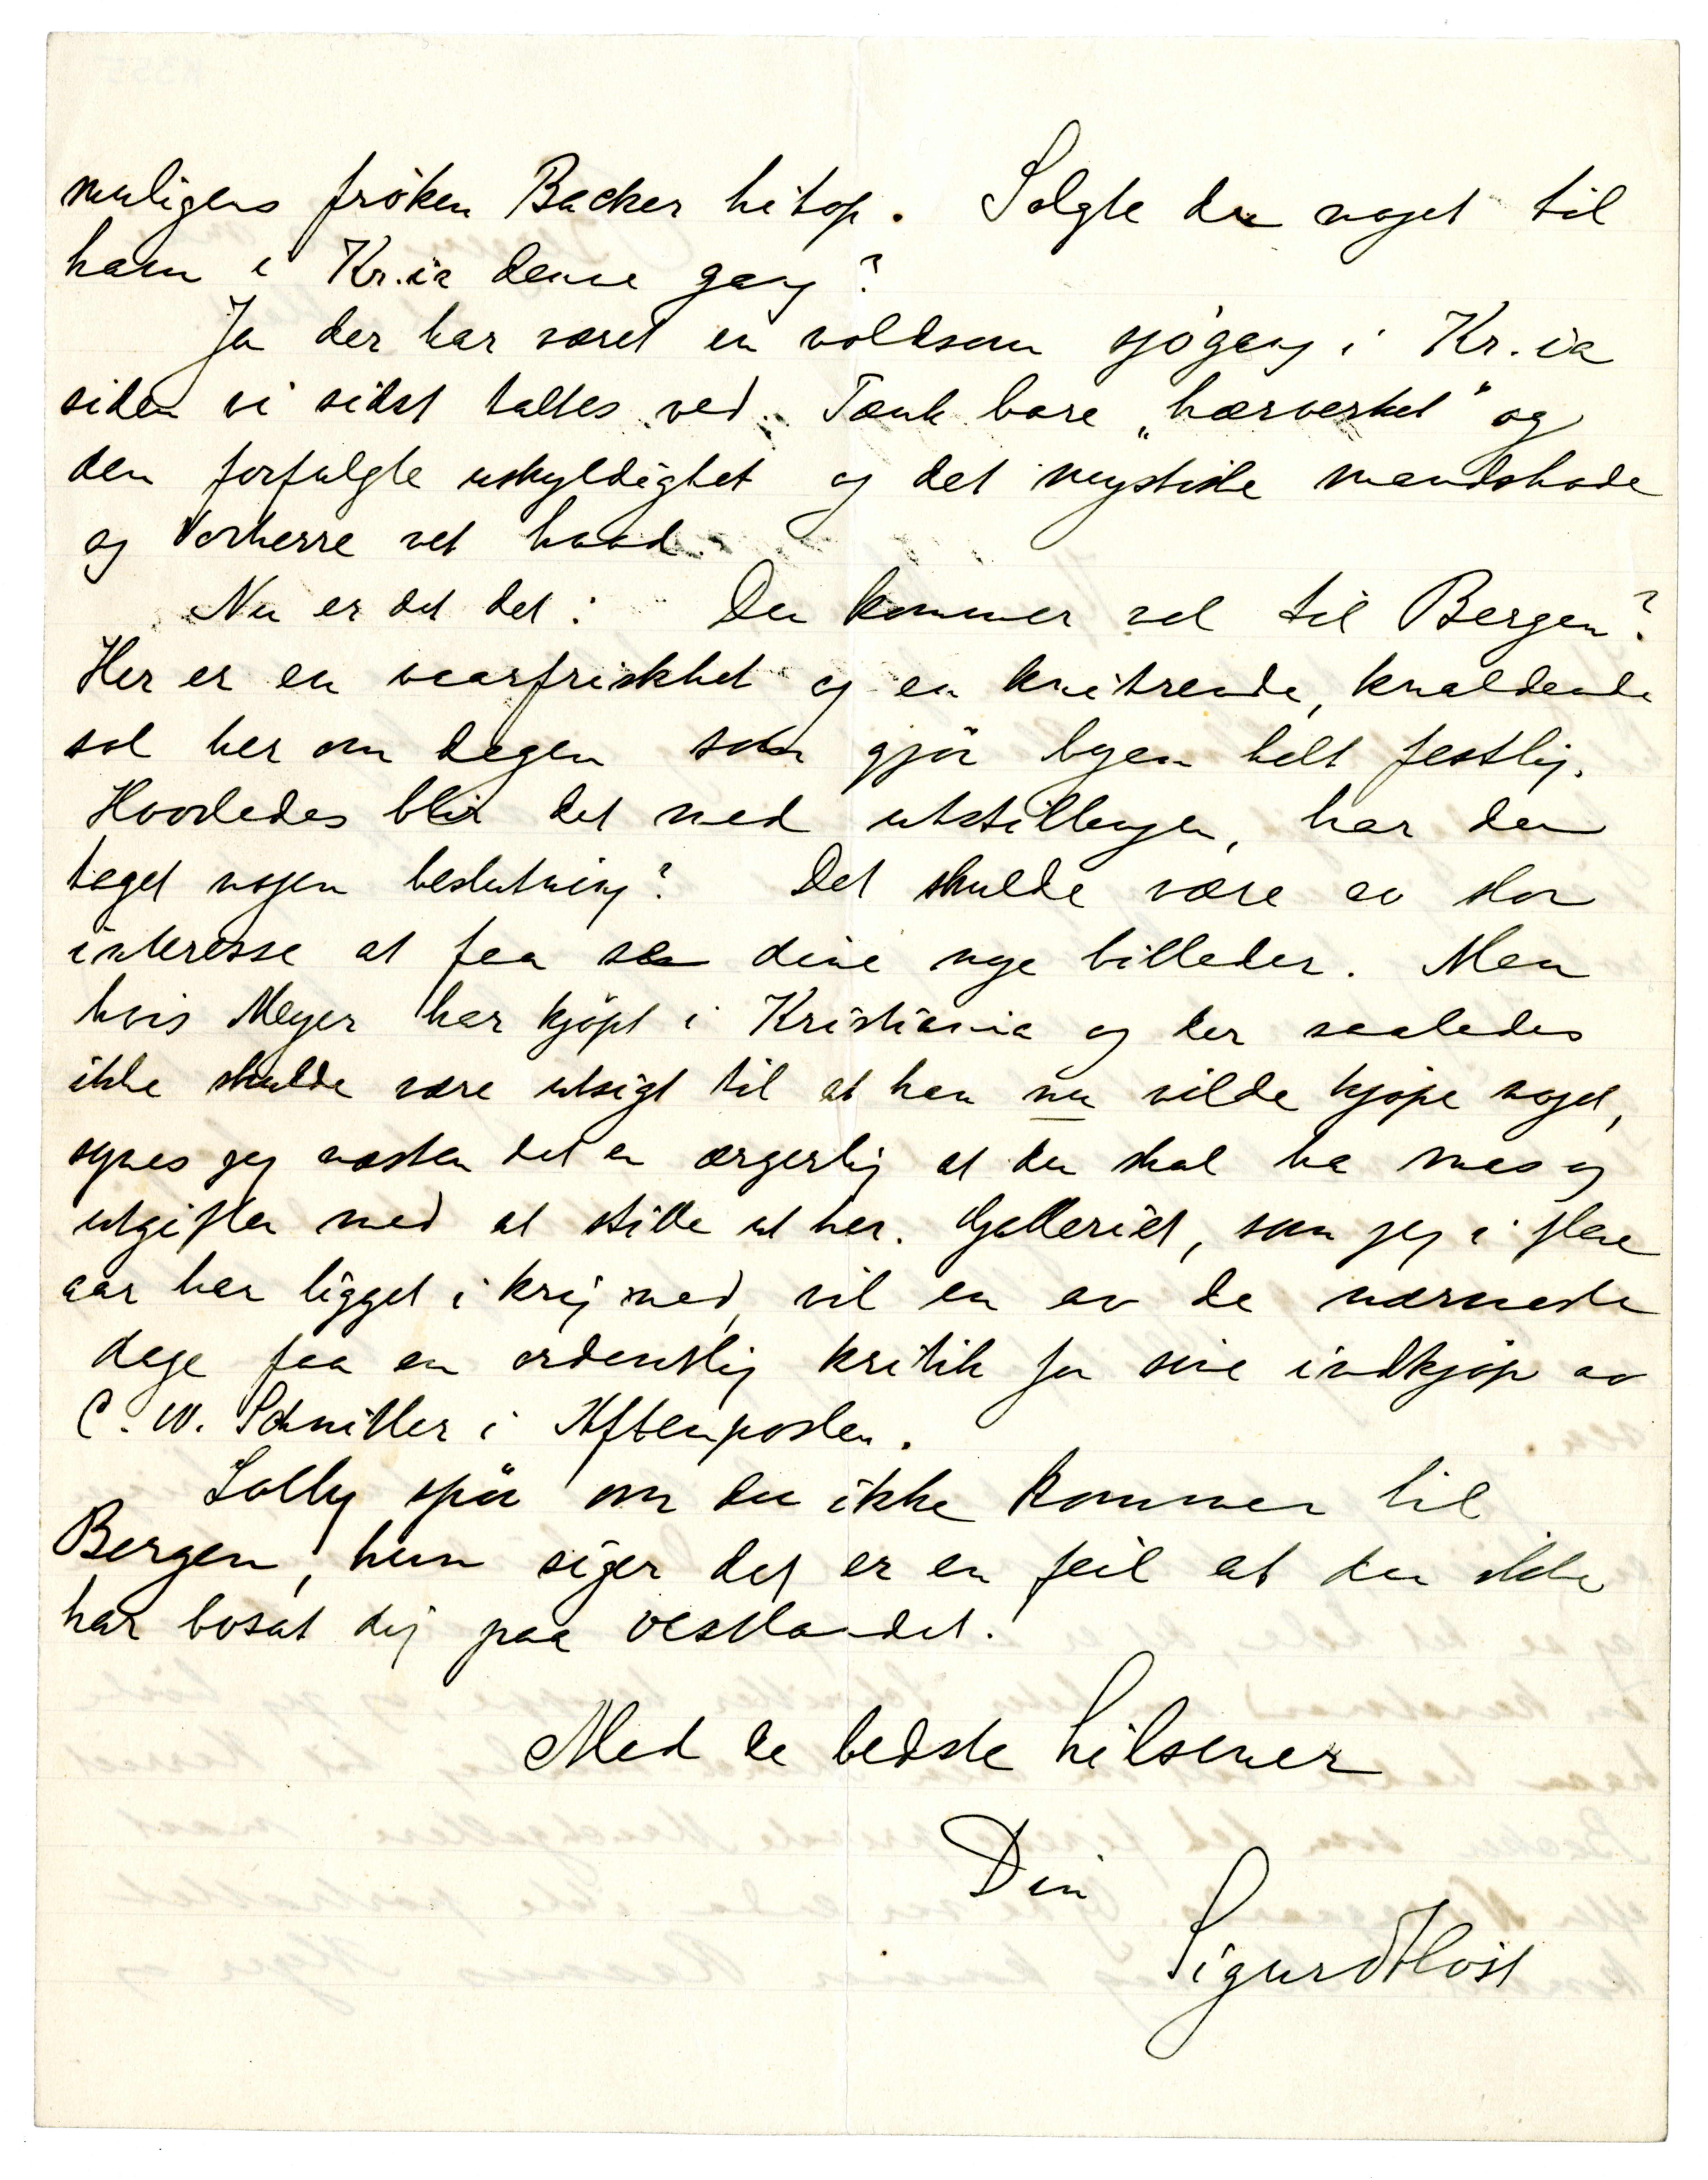 muligens frøken Backer hitop. Solgte du noget til
ham i Kr.ia denne gang?
Ja der har været en voldsom sjøgang i Kr.ia
siden vi sidst taltes ved. Tænk bare „hærverket" og
den forfulgte uskyldighet og det mystiske mandshode
og Vorherre vet hvad.
Nu er det det: Du kommer vel til Bergen?
Her er en vaarfriskhet og en knitrende, knaldende
sol her om dagen som gjør byen helt festlig.
Hvorledes blir det med utstillingen, har du
taget nogen beslutning? Det skulde være av stor
interesse at faa se dine nye billeder. Men
hvis Meyer har kjøpt i Kristiania og der saaledes
ikke skulde være utsigt til at han nu vilde kjøpe noget,
synes jeg næsten det er ærgerlig at du skal ha mas og
utgifter med at stille ut her. Galleriet, som jeg i flere
aar har ligget i krig med, vil en av de nærmeste
dage faa en ordentlig kritik for sine indkjøp av
C. W. Schnitler i Aftenposten.
Lolly spør om du ikke kommer til
Bergen, hun siger det er en feil at du ikke
har bosat dig paa vestlandet.
Med de bedste hilsener
Din
Sigurd Høst